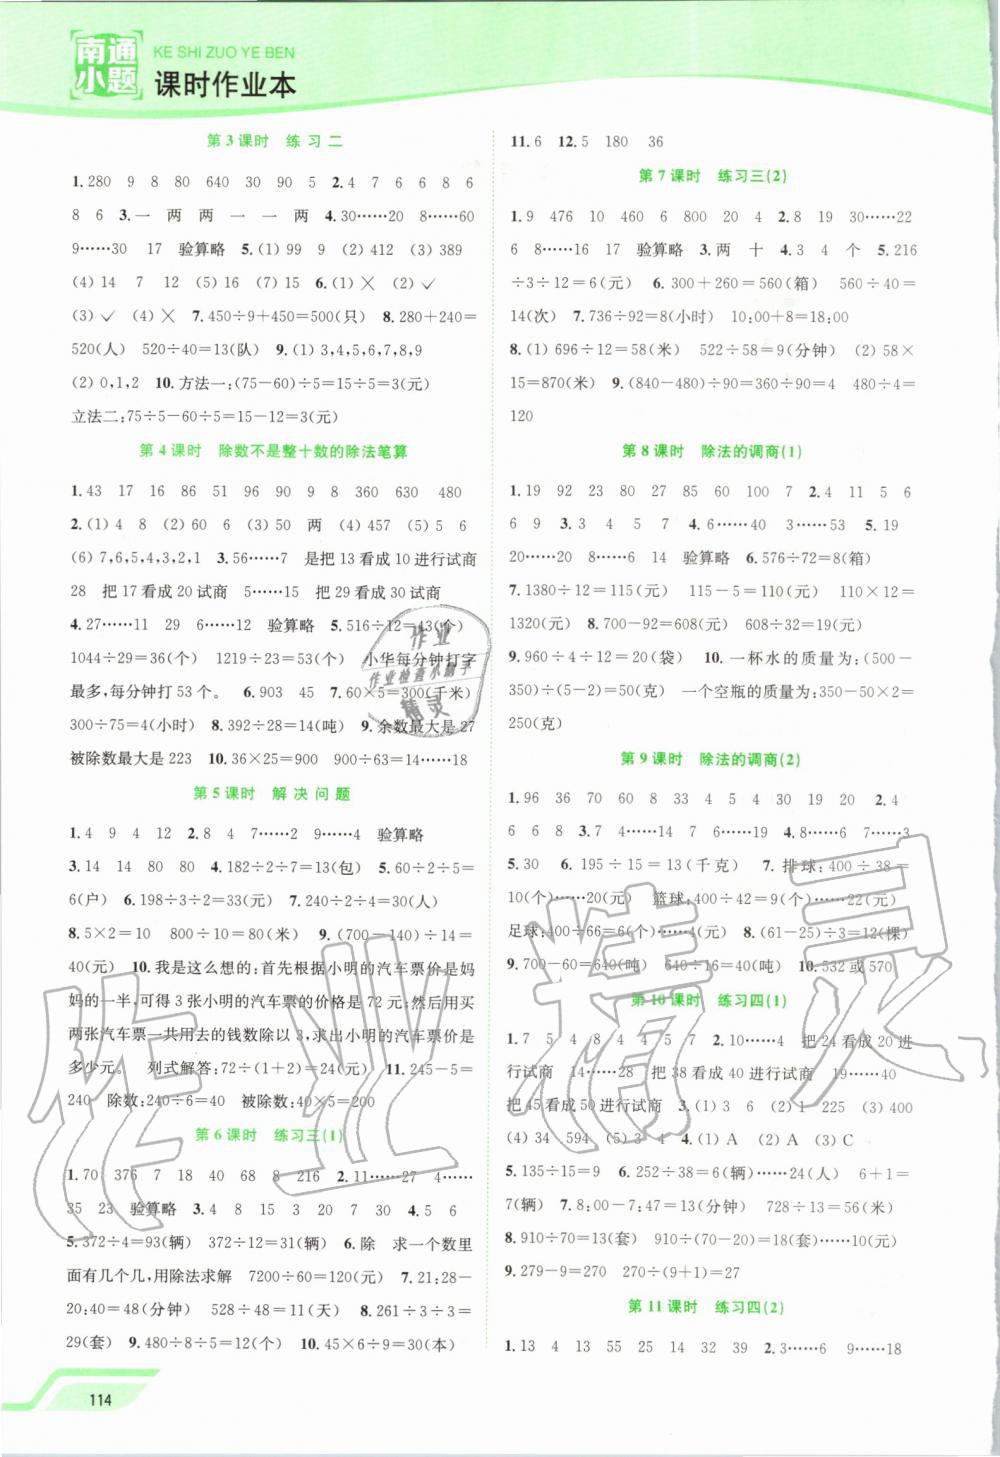 南通小题
KE SHI ZUO YE BEN
课时作业本
第3课时 练习二
1.280 9 8 80 640 30 90 5 2.4 7 6 6 8 6
8 6 3.一 两 两 一 一 两 4.30……20 8……60
9……30 17 验算略 5.(1)99 9 (2)412 (3)389
(4)14 7 12 (5)16 15 6.(1)╳ (2)✓
(3)✓ (4)╳ 7.450÷9+450=500(只) 8.280+240=
520(人) 520÷40=13(队) 9.(1)3,4,5,6,7,8,9
(2)0,1,2 10.方法一:(75-60)÷5=15÷5=3(元)
立法二:75÷5-60÷5=15-12=3(元)
第4课时 除数不是整十数的除法笔算
1.43 17 16 86 51 96 90 9 8 360 630 480
2.(1)4 8 (2)60 6 (3)50 两 (4)457 (5)5 6
(6)7,6,5,4,3,2,1 3.56……7 是把13看成10进行试商
28 把17看成20试商 5……15 把29看成30试商
4.27……11 29 6……19 验算略 5.516÷12=43(个)
1044÷29=36(个) 1219÷23=53(个) 小华每分钟打字
最多,每分钟打53个。 6.903 45 7.60×5=300(千米)
300÷75=4(小时) 8.392÷28=14(吨) 9.余数最大是27
被除数最大是223 10.36×25=900 900÷63=14……18
第5课时 解决问题
1.4 9 4 12 2.8 4 7……2 9……4 验算略
3.14 14 80 80 4.182÷2÷7=13(包) 5.60÷2÷5=
6(户) 6.198÷3÷2=33(元) 7.240÷2÷4=30(人)
8.5×2=10 800÷10=80(米) 9.(700-140)÷14=
40(元) 10.我是这么想的:首先根据小明的汽车票是妈
妈的一半,可得3张小明的汽车票的价格是72元;然后用买
两张汽车票一共用去的钱数除以3,求出小明的汽车票价是
多少元。 列式解答:72÷(1+2)=24(元) 11.245-5=
240 除数:240÷6=40 被除数:40×5=200
第6课时 练习三(1)
1.70 376 7 18 40 68 8 216 2.11……27 4……
35 23 验算略 3.4 8 15 3 20 7 30 4.5 6
5.372÷4=93(辆) 372÷12=31(辆) 6.除 求一个数里
面有几个几,用除法求解 7200÷60=120(元) 7.21:28-
20:40=48(分钟) 528÷48=11(天) 8.261÷3÷3=
29(套) 9.480÷8÷5=12(个) 10.45×6÷9=30(本)
11.6 12.5 180 36
第7课时 练习三(2)
1.9 476 10 460 6 800 20 4 2.8 19 30……22
6 8……16 17 验算略 3.两 十 4.3 4 个 5.216
÷3÷12=6(元) 6.300+260=560(箱) 560÷40=
14(次) 7.736÷92=8(小时) 10:00+8=18:00
8.(1)696÷12=58(米) 522÷58=9(分钟) (2)58×
15=870(米) 9.(840-480)÷90=360÷90=4 480÷4=
120
第8课时 除法的调商(1)
1.19 92 23 80 27 85 60 100 7 2.4 11 5 6
6 9 3.3 4 5 7 4.6……40 3……53 5.19
20……20 8……6 14 验算略 6.576÷72=8(箱)
7.1380÷12=115(元) 115-5=110(元) 110×12=
1320(元) 8.700-92=608(元) 608÷32=19(元)
9.960÷4÷12=20(袋) 10.一杯水的质量为:(500-
350)÷(5-2)=50(克) 一个空瓶的质量为:350-50×2=
250(克)
第9课时 除法的调商(2)
1.96 36 70 60 8 33 4 4 30 19 20 2.4
6 6 8 3.7 4……14 6……16 4.8……6 7……3
5.30 6.195÷15=13(千克) 7.排球:400÷38=
10(个)……20(元) 篮球:400÷42=9(个)……22(元)
足球:400÷66=6(个)……4(元) 8.(61-25)÷3=12(棵)
9.700-60=640(吨) 640÷16=40(吨) 10.532或570
第10课时 练习四(1)
1.7 5 4 8 4 4 5 7 2.10……4 把24看成20进
行试商 14……28 把38看成40进行试商 19……40
把45看成50进行试商 3.(1)3 6 (2)1 225 (3)400
(4)34 594 (5)3 4 4.(1)A (2)A (3)C
5.135÷15=9 6.252÷38=6(辆)……24(人) 6+1=
7(辆) 7.8:00-7:47=13(分钟) 728÷13=56(米)
8.910÷70=13(套) 910÷(70-20)=18(套)……10(元)
9.279-9=270 270÷(9+1)=27
第11课时 练习四(2)
1.13 4 13 55 25 14 32 2.3……6 9……18
114
作业
作业检查小助手
精灵
作业精灵